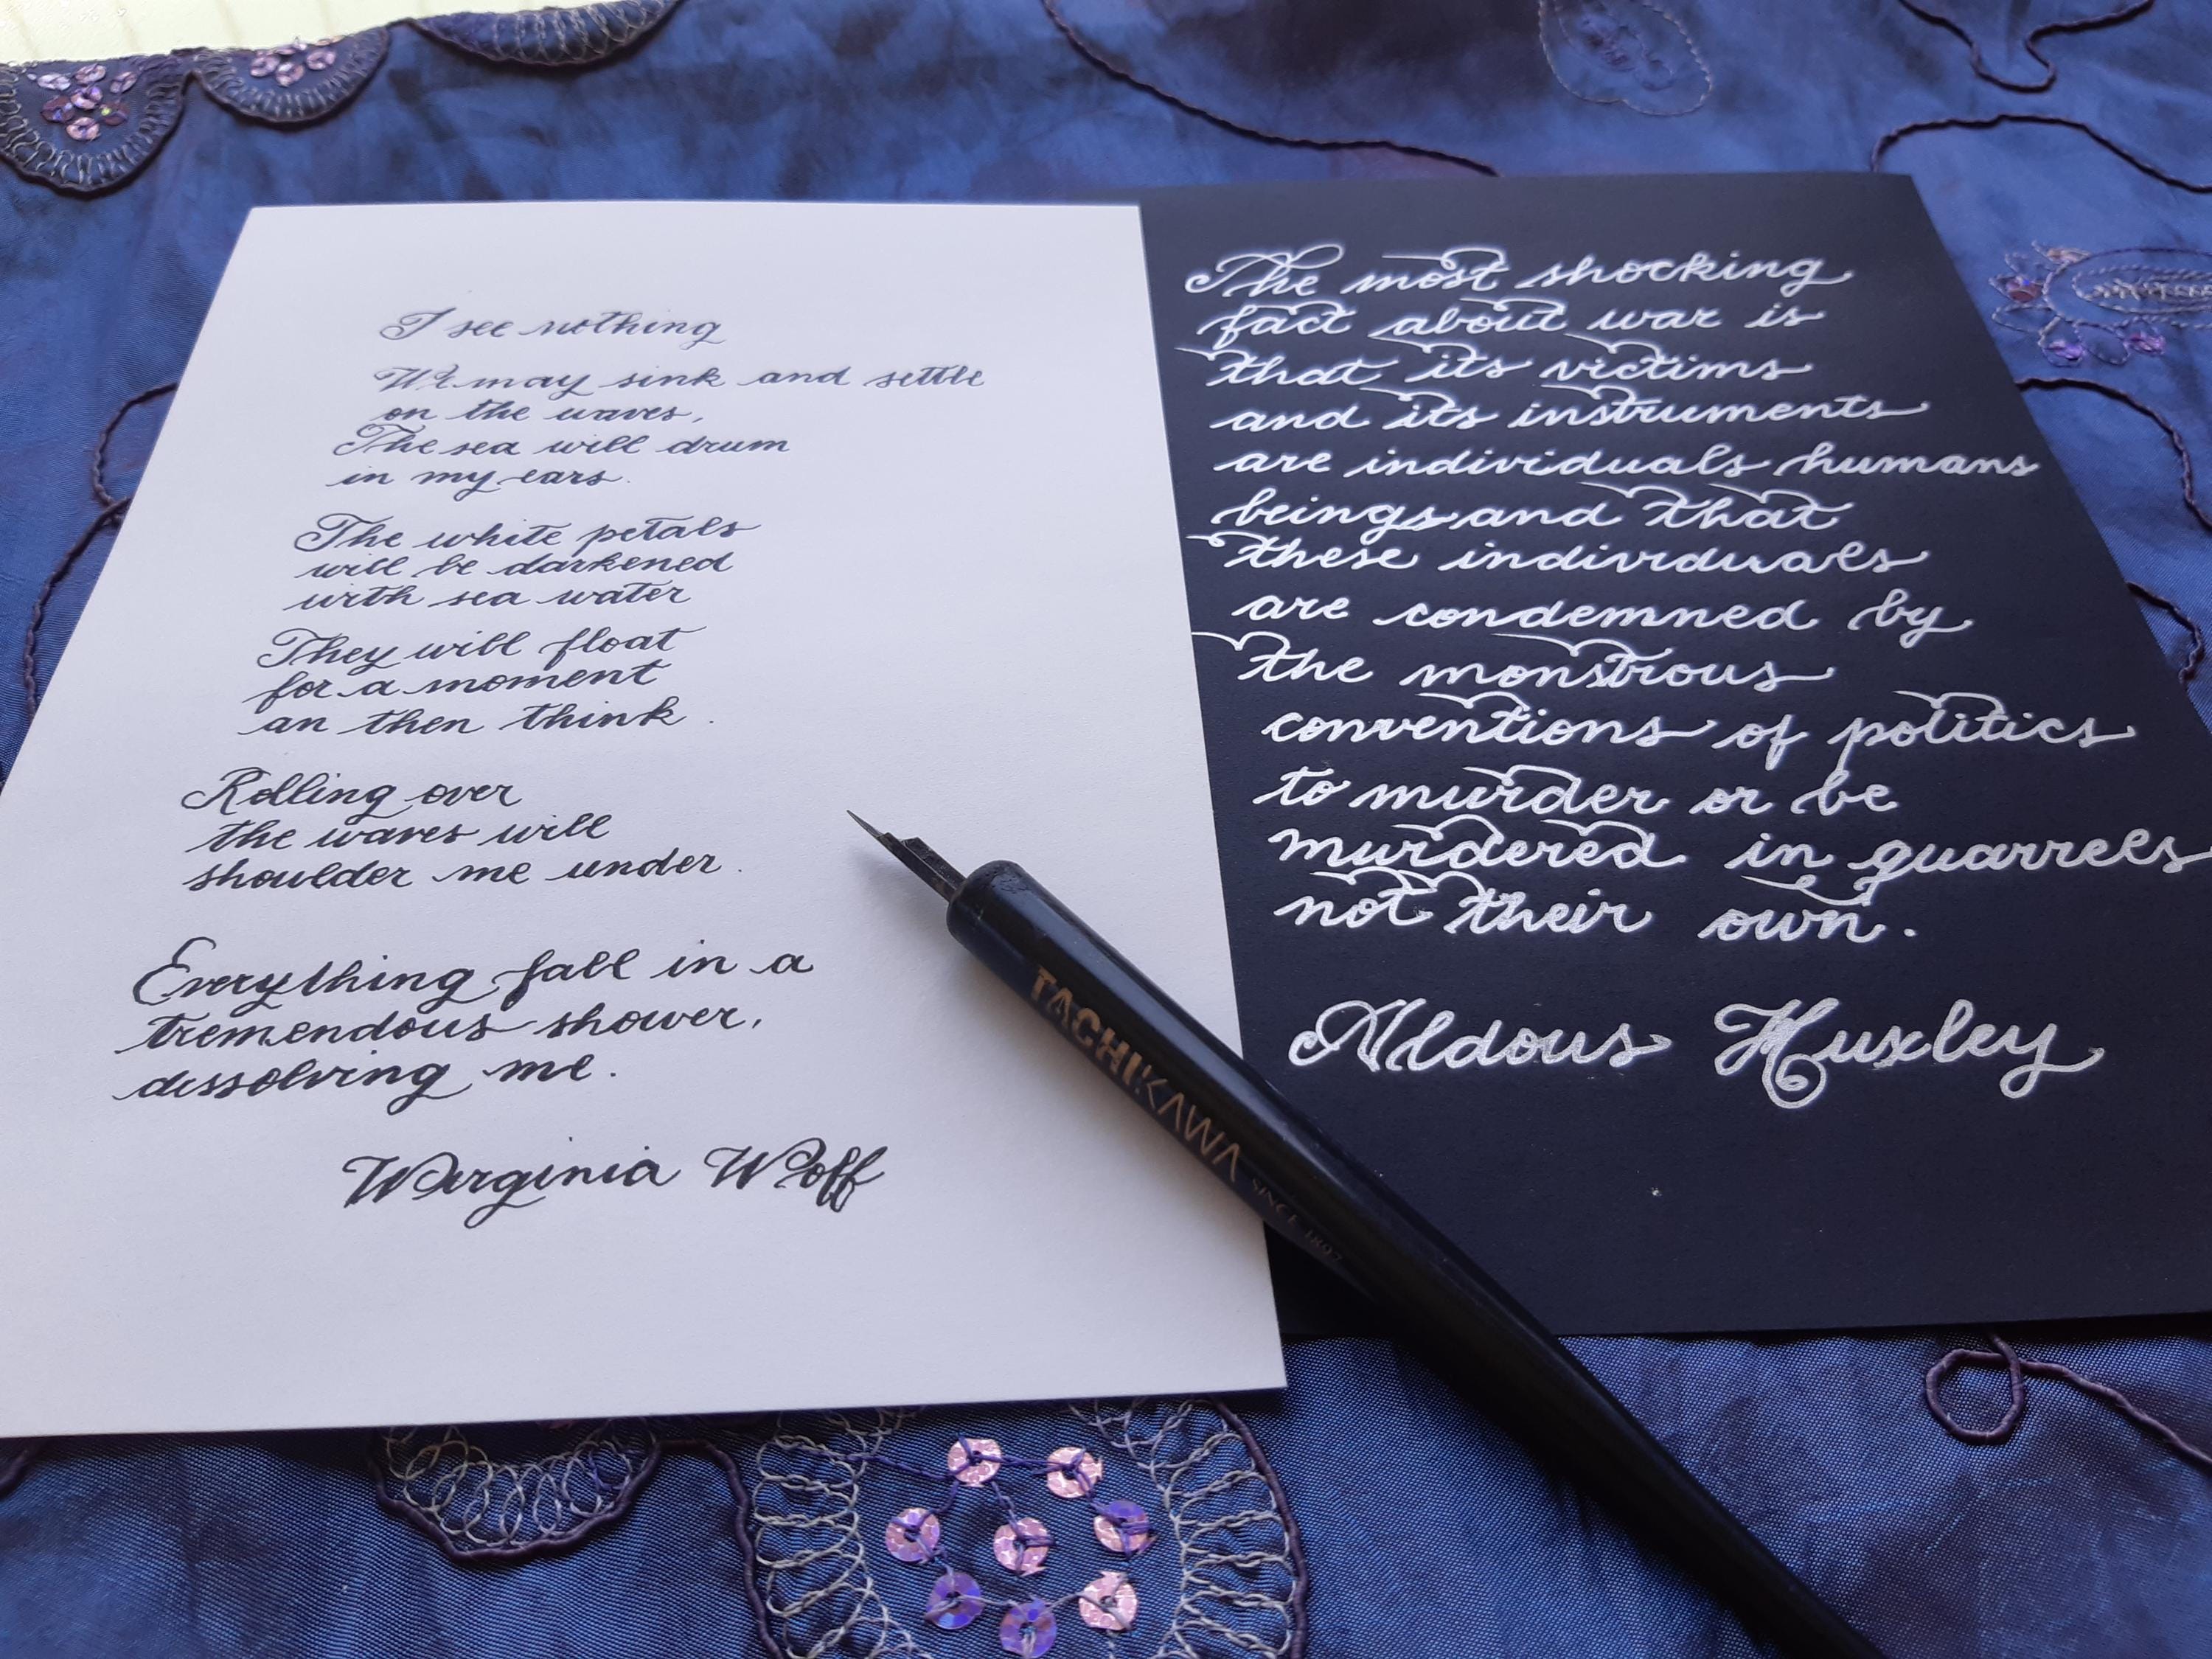 I see nothing
We may sink and settle
on the waves,
The sea will drum
in my ears.
The white petals
will be darkened
with sea water
They will float
for a moment
an then think.
Rolling over
the waves will
shoulder me under.
Everything fall in a
tremendous shower,
dissolving me.
Wirginia Woff
The most shocking
fact about war is
that its victims
and its instruments
are individuals humans
beings and that
these individuals
are condemned by
the monstrous
conventions of politics
to murder or be
murdered in quarrels
not their own.
Aldous Huxley
TACHIKAWA SINCE